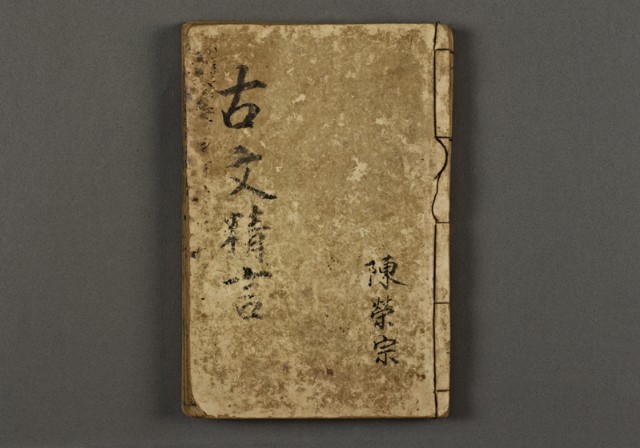 古文精言
陳榮宗